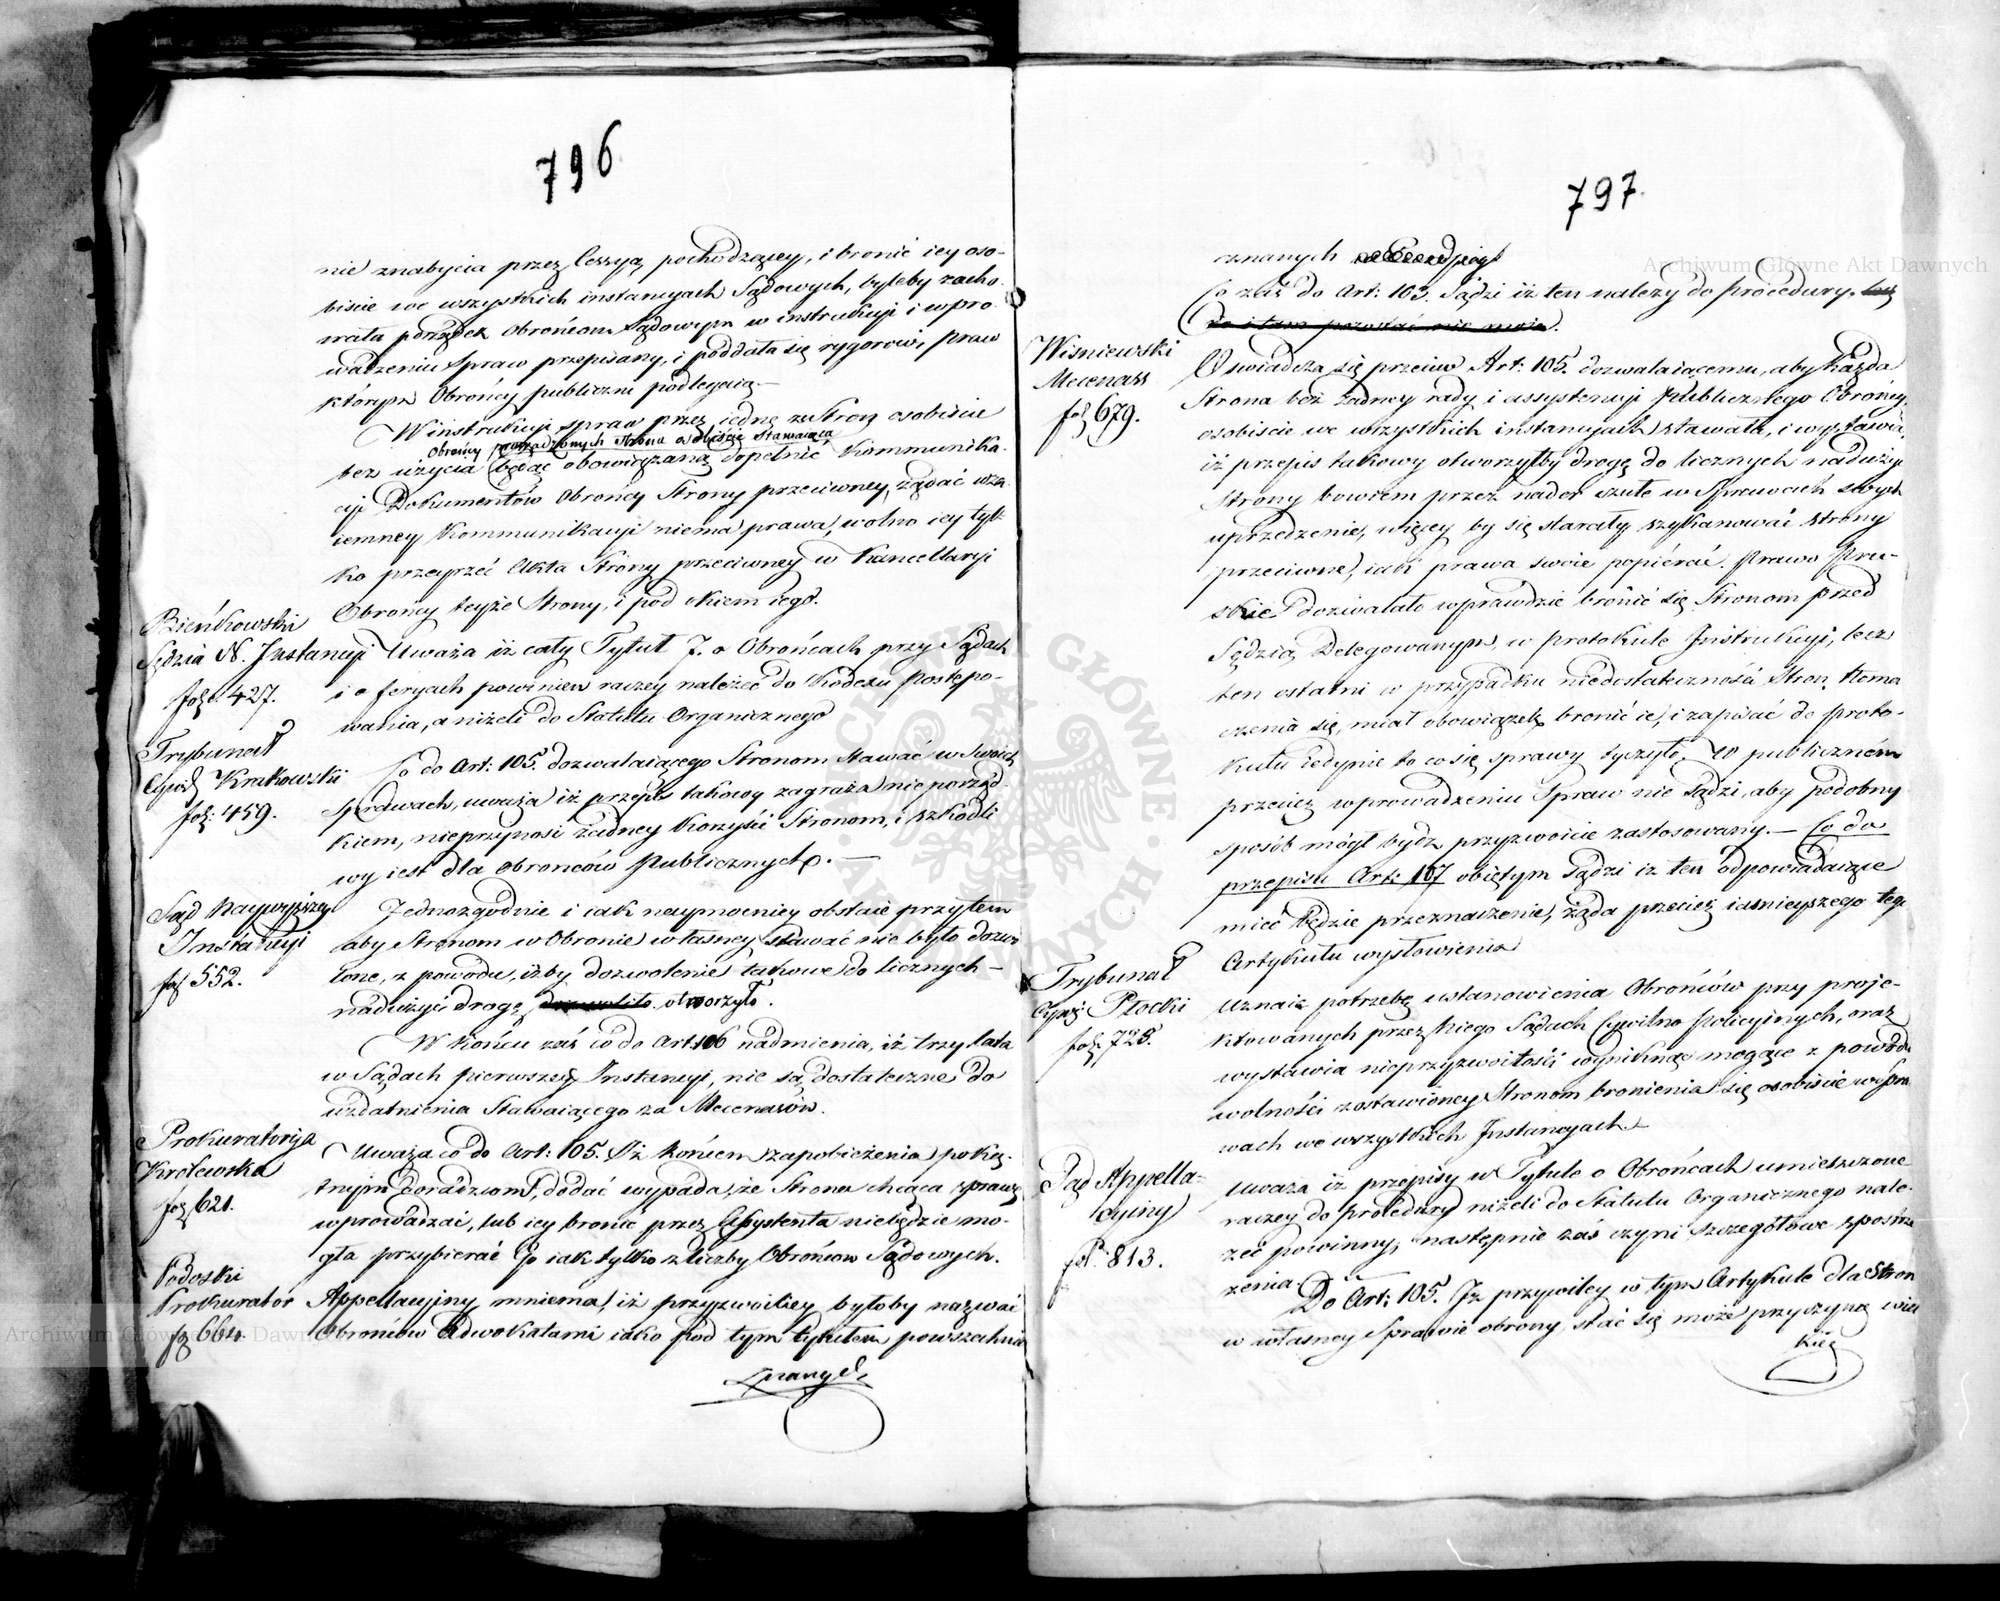 796.
nie znabycia przez Cessyą pochodzącey, i bronić iey oso-
biście we wszystkich instancyach Sądowych, byleby zacho-
wała porządek Obrońcom Sądowym w instrukcyi i wpro-
wadzeniu Spraw przepisany, i poddała się rygorowi praw
którym Obrońcy publiczni podlegaią.—
W instrukcyi spraw przez iednę ze Stron osobiście
Obrońcy strona osobiście stawaiąca
bez użycia będąc obowiązaną dopełnić Kommunika-
cyi Dokumentów Obrońcy Strony przeciwney, żądać wza-
iemney Kommunikacyi niema prawa, wolno iey tyl-
ko przeyrzeć Akta Strony przeciwney w Kancellaryi
Obrońcy teyże Strony, i pod okiem iego.
Bieńkowski
Sędzia N. Instancyi
fol: 427.
Uważa iż cały Tytuł 7. o Obrońcach przy Sądach
i o feryach powinien raczey należeć do Kodexu postępo-
wania, a niżeli do Statutu Organicznego
Trybunał
Cywil: Krakowski
fol: 459.
Co do Art: 105. dozwalaiącego Stronom stawać w Swoich
sprawach, uważa iż przepis takowy zagraża nieporząd-
kiem, nieprzynosi żadney Korzyści Stronom, i szkodli
wy iest dla obrońców Publicznych.—
Sąd Naywyższey
Instancyi
fol 552.
Jednozgodnie i iak naymocniey obstaie przytem
aby Stronom w Obronie własney stawać nie było dozwo
lone, z powodu, iżby dozwolenie takowe do licznych—
nadużyć drogę otworzyło.
W końcu zaś co do Art: 106 nadmienia, iż trzy lata
w Sądach pierwszey Instancyi, nie są dostateczne do
uzdatnienia Stawaiącego za Mecenasów.
Prokuratorya
Krolewska
fol 621.
Uważa co do Art: 105. Iż końcem zapobieżenia poką-
tnym doradzcom, dodać wypada, że Strona chcąca sprawę
wprowadzać, lub iey bronić przez Assystenta niebędzie mo-
gła przybierać Go iak tylko z liczby Obrońców Sądowych.
Podoski
Prokurator
fol 664.
Appellacyjny mniema, iż przyzwoiciey byłoby nazwać
Obrońców Adwokatami iako pod tym tytułem powszechnie
znanych
797.
znanych
Co zaś do Art: 103. Sądzi iż ten należy do procedury.
Wiśniewski
Mecenass
fol 679.
Oświadcza się przeciw Art: 105. dozwalaiącemu, aby Każda
Strona bez żadney rady i assystencyi Publicznego Obrońcy,
osobiście we wszystkich instancyach stawała, i wystawia,
iż przepis takowy otworzyłby drogę do licznych nadużyć
Strony bowiem przez nader czułe w Sprawach swych
uprzedzenie, więcey by się starały szykanować strony
przeciwne, iak prawa swoie popiérać. Prawo Pru-
skie dozwalało wprawdzie bronić się Stronom przed
Sędzią Delegowanym, w protokule Instrukcyi, lecz
ten ostatni w przypadku niedostateczności Stron tłoma
czenia się, miał obowiązek bronić ie, i zapisać do proto-
kułu iedynie to co się sprawy tyczyło. W publiczném
przecież wprowadzeniu Spraw nie sądzi, aby podobny
sposób mógł bydź przyzwoicie zastosowany.— Co do
przepisu Art: 107 obiętym sądzi iż ten odpowiadaiące
mieć będzie przeznaczenie, żąda przecież iaśnieyszego tego
Artykułu wysłowienia
Trybunał
Cywil: Płocki
fol: 725.
Uznaie potrzebę ustanowienia Obrońców przy proje-
ktowanych przez Niego Sądach Cywilno Policyinych, oraz
wystawia nieprzyzwoitość wyniknąć mogące z powodu
wolności zostawioney Stronom bronienia się osobiście w spra
wach we wszystkich Instancyach.—
Sąd Appella-
cyiny
fol: 813.
Uważa iż przepisy w Tytule o Obrońcach umieszczone
raczey do procedury niżeli do Statutu Organicznego nale-
żeć powinny, następnie zaś czyni szczegółowe spostrze
żenia.
Do Art: 105. Iż przywiley w tym Artykule dla Stron
w własney Sprawie obrony, stać się może przyczyną wiel
kiég